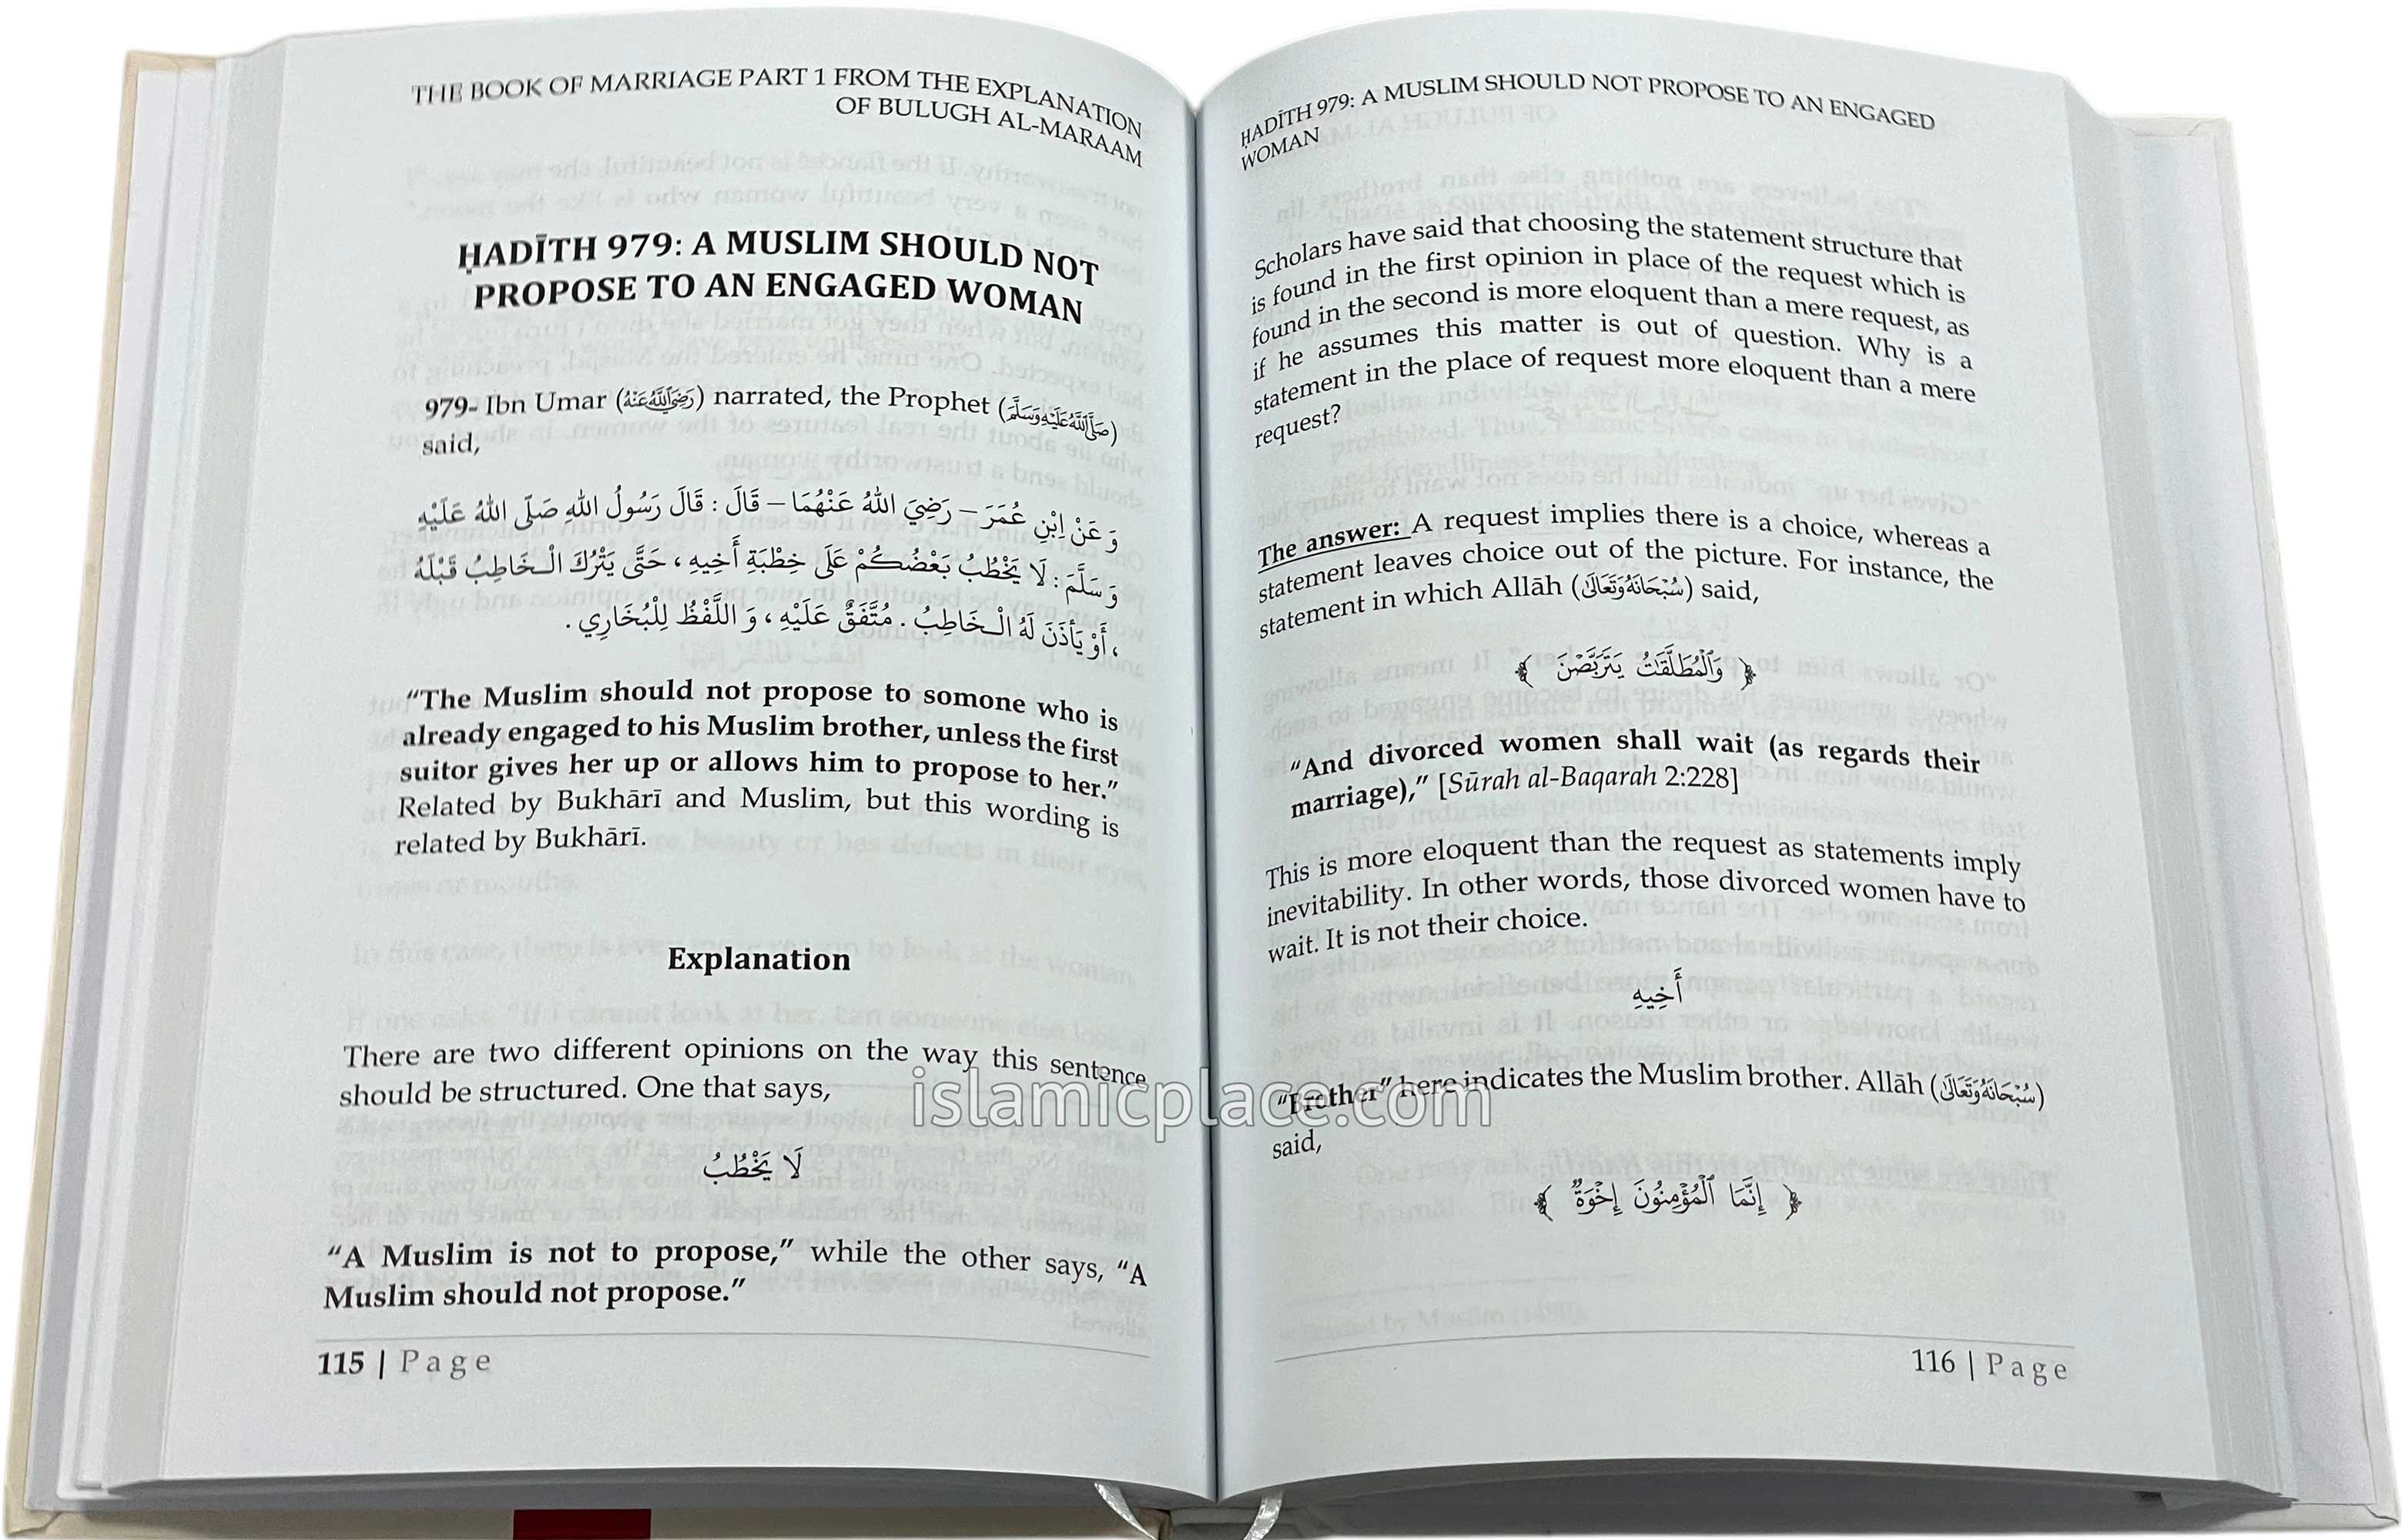 THE BOOK OF MARRIAGE PART 1 FROM THE EXPLANATION
OF BULUGH AL-MARAAM
ḤADĪTH 979: A MUSLIM SHOULD NOT
PROPOSE TO AN ENGAGED WOMAN
979- Ibn Umar (رَضِيَ اللَّهُ عَنْهُ) narrated, the Prophet (صَلَّى اللَّهُ عَلَيْهِ وَسَلَّمَ)
said,
وَ عَنْ اِبْنِ عُمَرَ – رَضِيَ اللهُ عَنْهُمَا – قَالَ : قَالَ رَسُولُ اللهِ صَلّى اللهُ عَلَيْهِ
وَ سَلَّمَ : لَا يَخْطُبُ بَعْضُكُمْ عَلَى خِطْبَةِ أَخِيهِ ، حَتَّى يَتْرُكَ الْـخَاطِبُ قَبْلَهُ
، أَوْ يَأْذَنَ لَهُ الْـخَاطِبُ . مُتَّفَقٌ عَلَيْهِ ، وَ اللَّفْظُ لِلْبُخَارِي .
“The Muslim should not propose to somone who is
already engaged to his Muslim brother, unless the first
suitor gives her up or allows him to propose to her.”
Related by Bukhārī and Muslim, but this wording is
related by Bukhārī.
Explanation
There are two different opinions on the way this sentence
should be structured. One that says,
لَا يَخْطُبُ
“A Muslim is not to propose,” while the other says, “A
Muslim should not propose.”
115 | Page
ḤADĪTH 979: A MUSLIM SHOULD NOT PROPOSE TO AN ENGAGED
WOMAN
Scholars have said that choosing the statement structure that
is found in the first opinion in place of the request which is
found in the second is more eloquent than a mere request, as
if he assumes this matter is out of question. Why is a
statement in the place of request more eloquent than a mere
request?
The answer: A request implies there is a choice, whereas a
statement leaves choice out of the picture. For instance, the
statement in which Allāh (سُبْحَانَهُ وَتَعَالَىٰ) said,
﴿ وَٱلْمُطَلَّقَٰتُ يَتَرَبَّصْنَ ﴾
“And divorced women shall wait (as regards their
marriage),” [Sūrah al-Baqarah 2:228]
This is more eloquent than the request as statements imply
inevitability. In other words, those divorced women have to
wait. It is not their choice.
أَخِيهِ
“Brother” here indicates the Muslim brother. Allāh (سُبْحَانَهُ وَتَعَالَىٰ)
said,
﴿ إِنَّمَا ٱلْمُؤْمِنُونَ إِخْوَةٌ ﴾
116 | Page
islamicplace.com